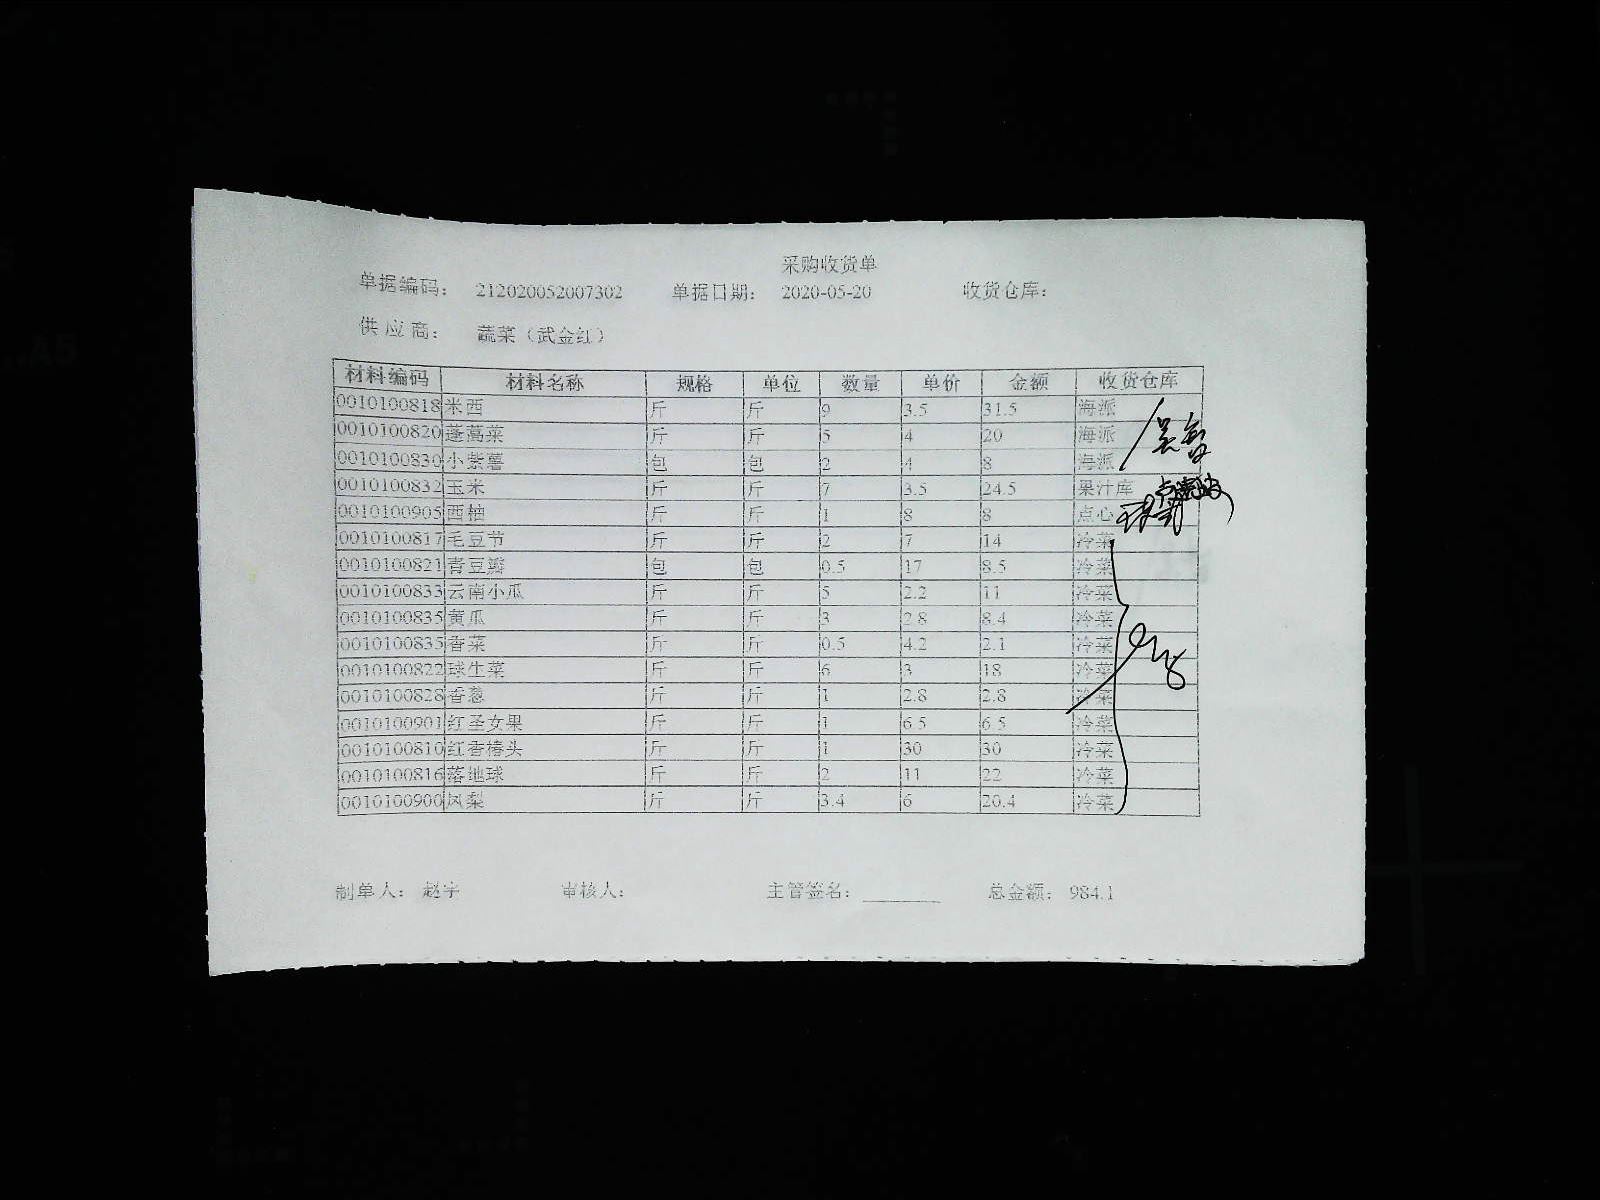 采购收货单
单据编码： 212020052007302 单据日期： 2020-05-20 收货仓库：
供 应 商： 蔬菜（武金红）
材料编码 材料名称 规格 单位 数量 单价 金额 收货仓库
0010100818 米西 斤 斤 9 3.5 31.5 海派
0010100820 蓬蒿菜 斤 斤 5 4 20 海派
0010100830 小紫薯 包 包 2 4 8 海派
0010100832 玉米 斤 斤 7 3.5 24.5 果汁库
0010100905 西柚 斤 斤 1 8 8 点心
0010100817 毛豆节 斤 斤 2 7 14 冷菜
0010100821 青豆瓣 包 包 0.5 17 8.5 冷菜
0010100833 云南小瓜 斤 斤 5 2.2 11 冷菜
0010100835 黄瓜 斤 斤 3 2.8 8.4 冷菜
0010100835 香菜 斤 斤 0.5 4.2 2.1 冷菜
0010100822 球生菜 斤 斤 6 3 18 冷菜
0010100828 香葱 斤 斤 1 2.8 2.8 冷菜
0010100901 红圣女果 斤 斤 1 6.5 6.5 冷菜
0010100810 红香椿头 斤 斤 1 30 30 冷菜
0010100816 落地球 斤 斤 2 11 22 冷菜
0010100900 凤梨 斤 斤 3.4 6 20.4 冷菜
制单人： 赵宇 审核人： 主管签名： 总金额： 984.1